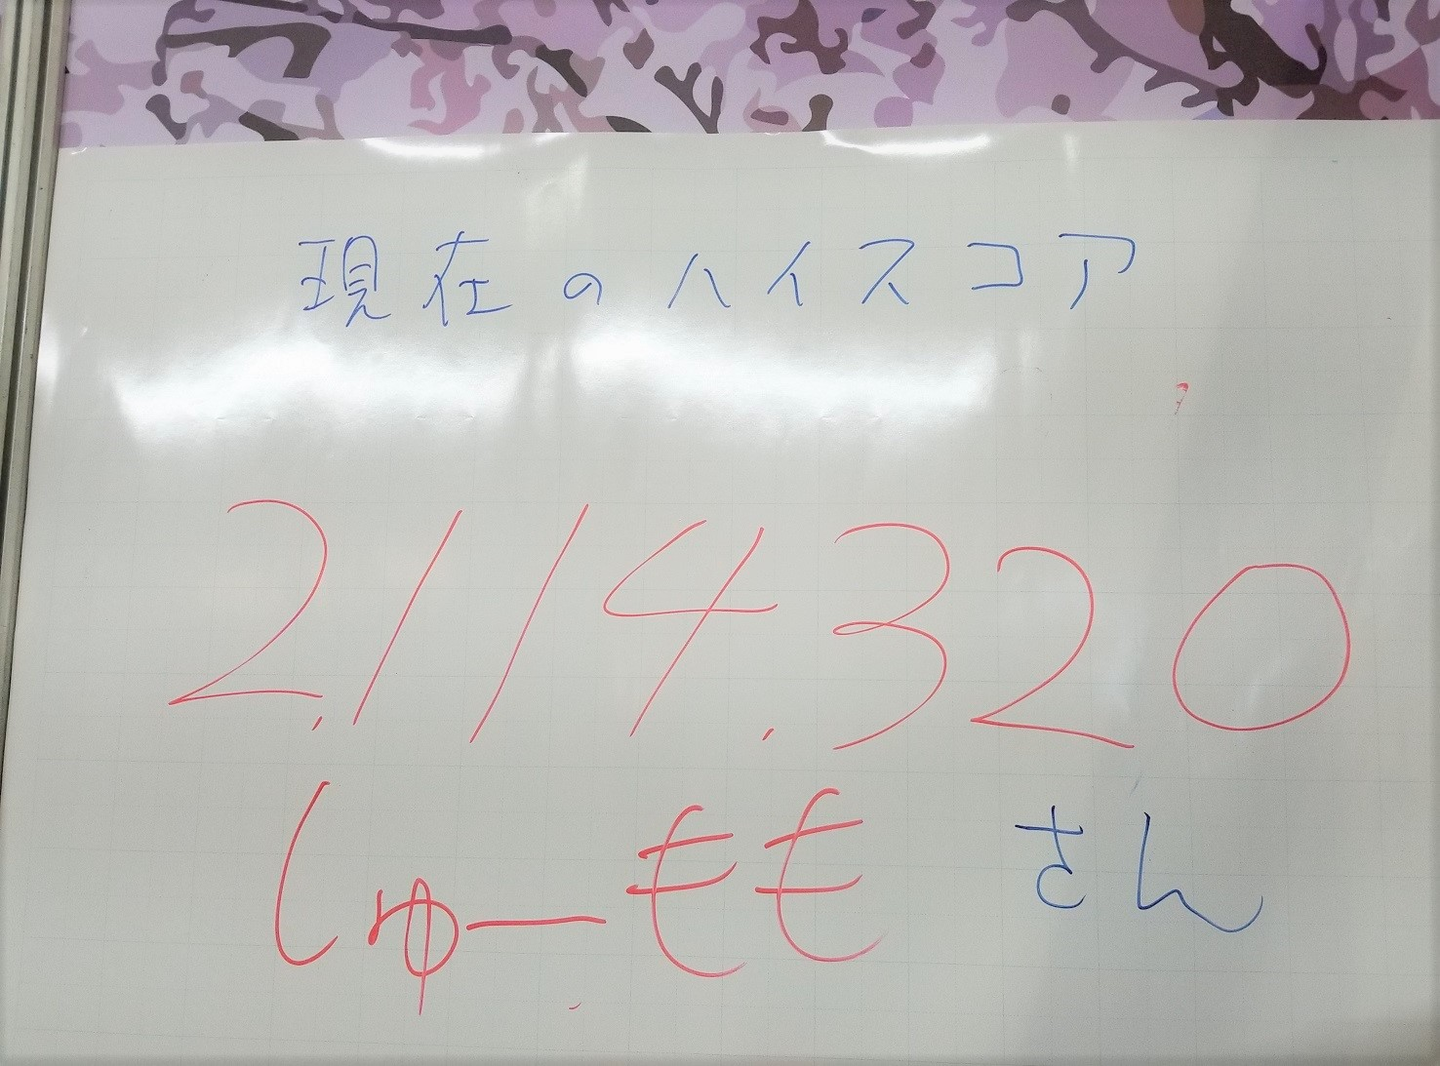 現在のハイスコア
2,114,320
しゅーもも さん